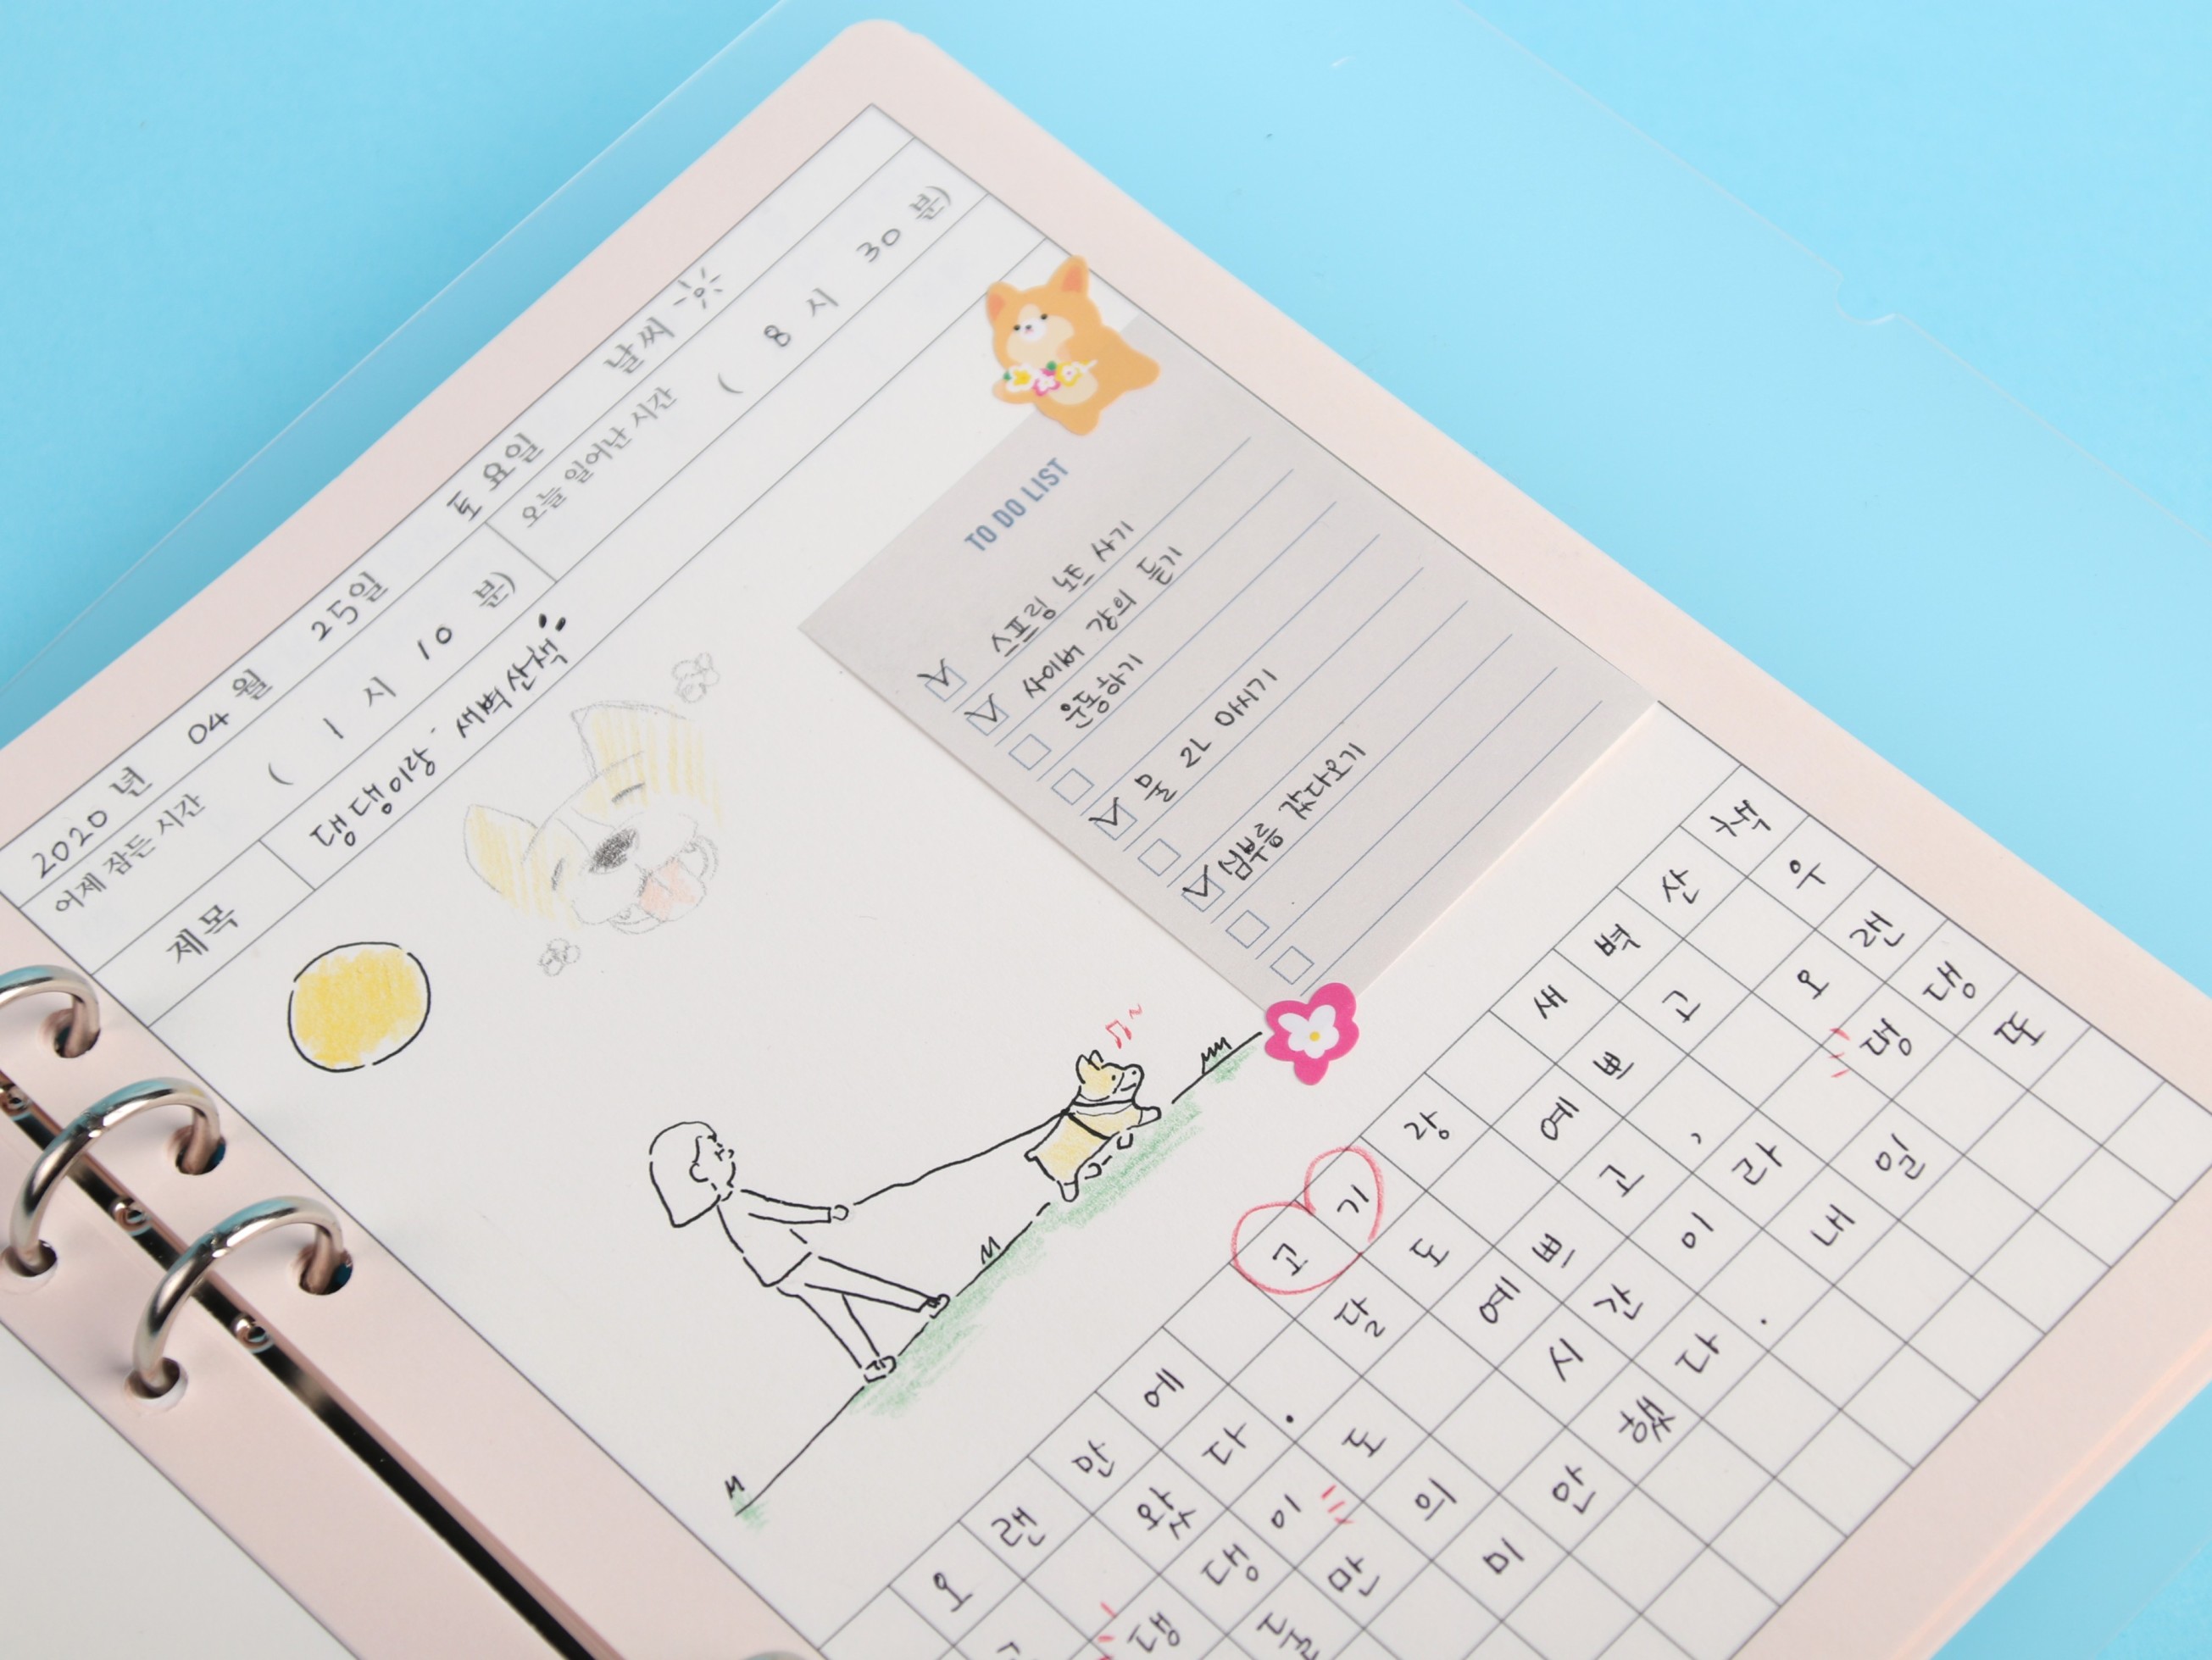 2020 년 04 월 25일 토요일 날씨
어제 잠든 시간 ( 1 시 10 분) 오늘 일어난 시간 ( 8 시 30 분)
제목 댕댕이랑 새벽산책
TO DO LIST
스프링 노트 사기
사이버 강의 듣기
운동하기
물 2L 마시기
심부름 갔다오기
오랜만에 고기랑 새벽산책
왔다. 달도 예쁘고 우
댕댕이도 예쁘고, 오랜
만의 시간이라 댕댕
미안했다. 내일 또